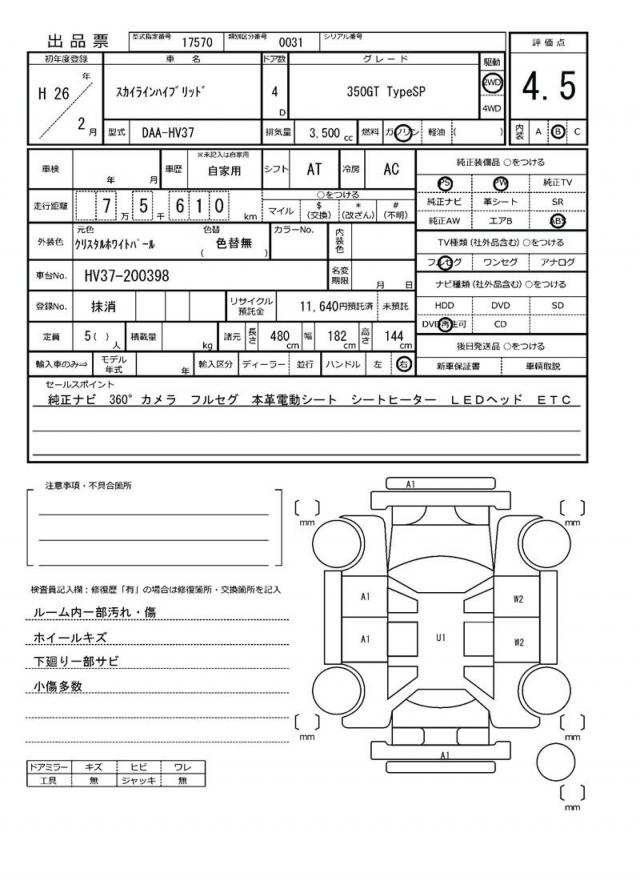 出品票 型式指定番号 17570 類別区分番号 0031 シリアル番号
初年度登録 車名 ドア数 グレード 駆動 評価点
H 26 年 2 月 スカイラインハイブリッド 4 D 350GT TypeSP 2WD 4WD 4.5
型式 DAA-HV37 排気量 3,500 cc 燃料 ガソリン 軽油 ( ) 内装 A B C
車検 年 月 車歴 ※未記入は自家用 自家用 シフト AT 冷房 AC
走行距離 7 万 5 千 6 1 0 km ○をつける マイル $ (交換) * (改ざん) # (不明)
外装色 元色 クリスタルホワイトパール 色替 ( 色替無 ) カラーNo. 内装色
車台No. HV37-200398 名変期限 月 日
登録No. 抹消 リサイクル預託金 11,640円預託済 未預託
定員 5( ) 人 積載量 kg 諸元 長さ 480 cm 幅 182 cm 高さ 144 cm
輸入車のみ⇒ モデル年式 年 輸入区分 ディーラー 並行 ハンドル 左 右
純正装備品 ○をつける
PS PW 純正TV
純正ナビ 革シート SR
純正AW エアB ABS
TV種類(社外品含む)○をつける
フルセグ ワンセグ アナログ
ナビ種類(社外品含む)○をつける
HDD DVD SD
DVD再生可 CD
後日発送品 ○をつける
新車保証書 車輌取説
セールスポイント
純正ナビ 360°カメラ フルセグ 本革電動シート シートヒーター LEDヘッド ETC
注意事項・不具合箇所
検査員記入欄：修復歴「有」の場合は修復箇所・交換箇所を記入
ルーム内一部汚れ・傷
ホイールキズ
下廻り一部サビ
小傷多数
ドアミラー キズ ヒビ ワレ
工具 無 ジャッキ 無
A1
[ ] mm [ ] mm
A1 W2
A1 U1 W2
[ ] mm [ ] mm
A1
[ ] mm